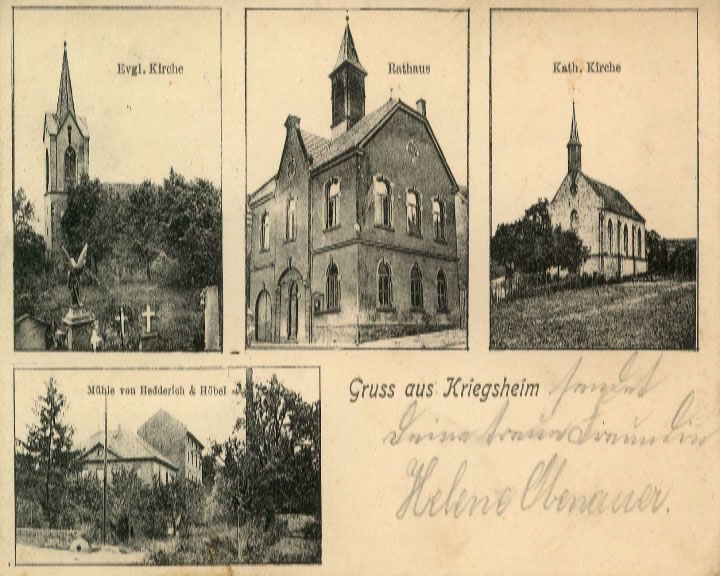 Evgl. Kirche
Rathaus
Kath. Kirche
Mühle von Hedderich & Höbel
Gruss aus Kriegsheim sendet
Deine treue Freundin
Helene Obenauer.